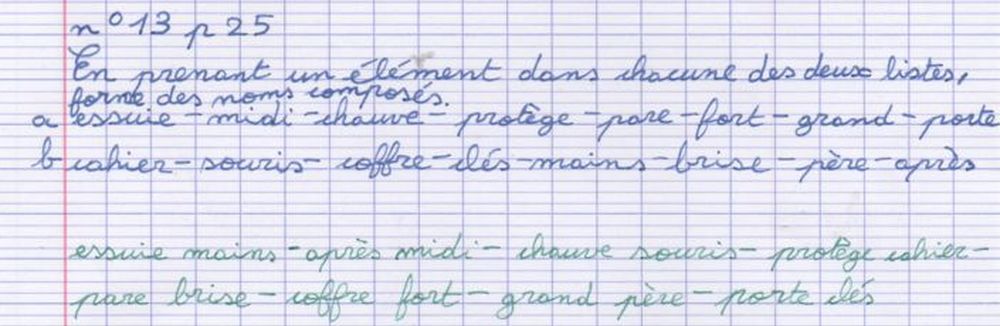 n° 13 p 25
En prenant un élément dans chacune des deux listes,
forme des noms composés.
a essuie - midi - chauve - protège - pare - fort - grand - porte
b cahier - souris - coffre - clés - mains - brise - père - après
essuie mains - après midi - chauve souris - protège cahier -
pare brise - coffre fort - grand père - porte clés